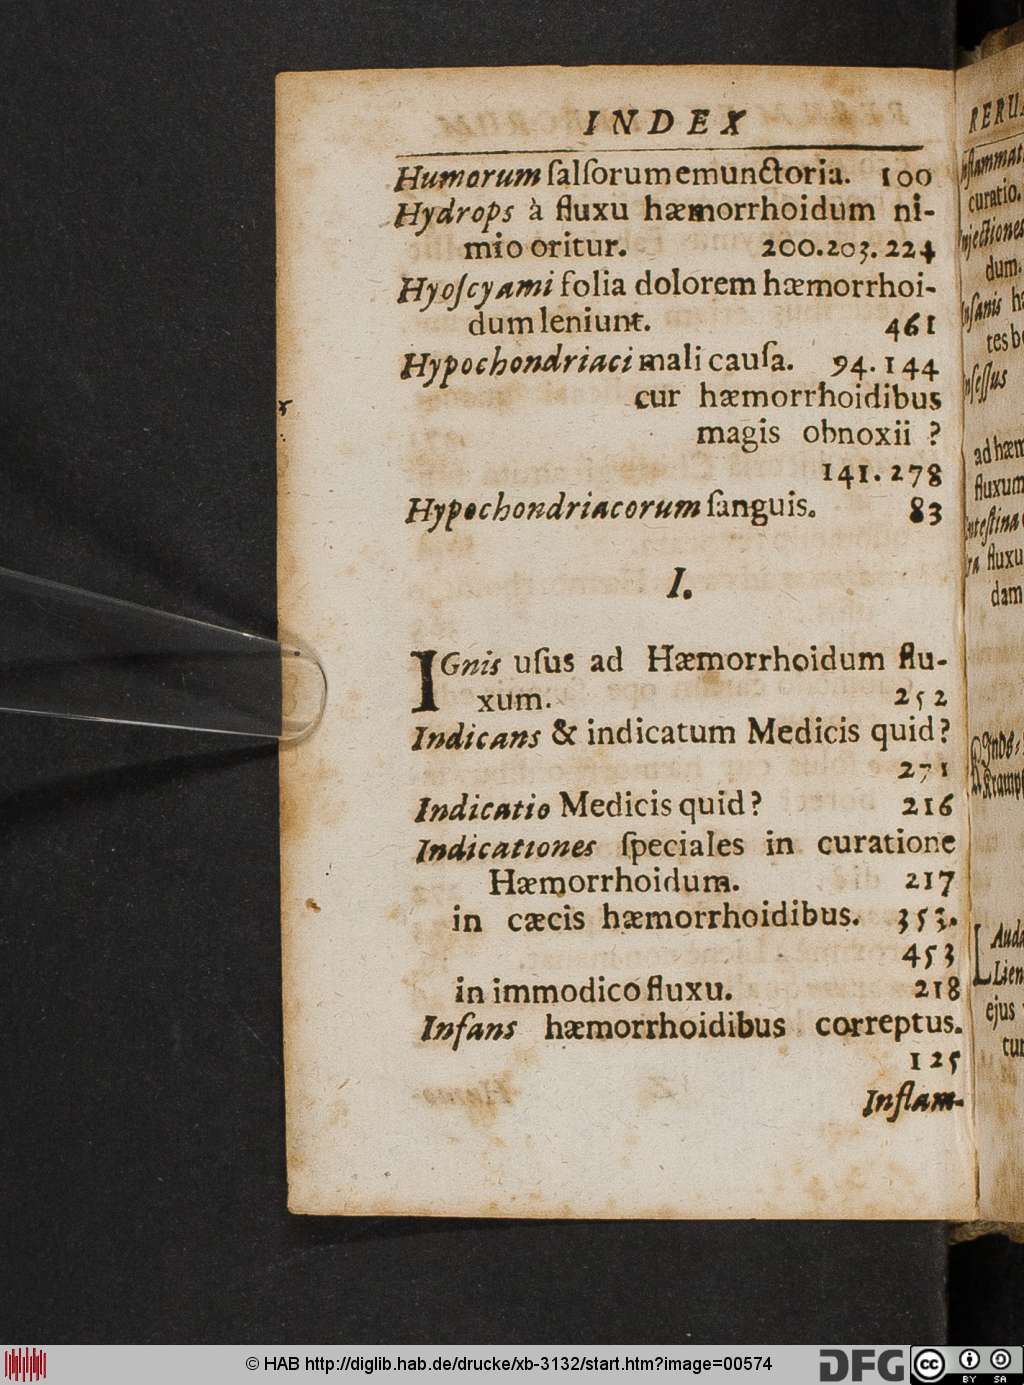 INDEX
Humorum ſalſorum emunctoria. 100
Hydrops à fluxu hæmorrhoidum ni-
mio oritur. 200.203.224
Hyoſcyami folia dolorem hæmorrhoi-
dum leniunt. 461
Hypochondriaci mali cauſa. 94.144
cur hæmorrhoidibus
magis obnoxii ?
141.278
Hypochondriacorum ſanguis. 83
I.
IGnis uſus ad Hæmorrhoidum flu-
xum. 252
Indicans & indicatum Medicis quid?
271
Indicatio Medicis quid? 216
Indicationes ſpeciales in curatione
Hæmorrhoidum. 217
in cæcis hæmorrhoidibus. 353.
453
in immodico fluxu. 218
Infans hæmorrhoidibus correptus.
125
Inflam-
curatio.
dum.
ad hæm
fluxum
fluxu
dam
Lien
ejus
© HAB http://diglib.hab.de/drucke/xb-3132/start.htm?image=00574
DFG
cc
BY SA